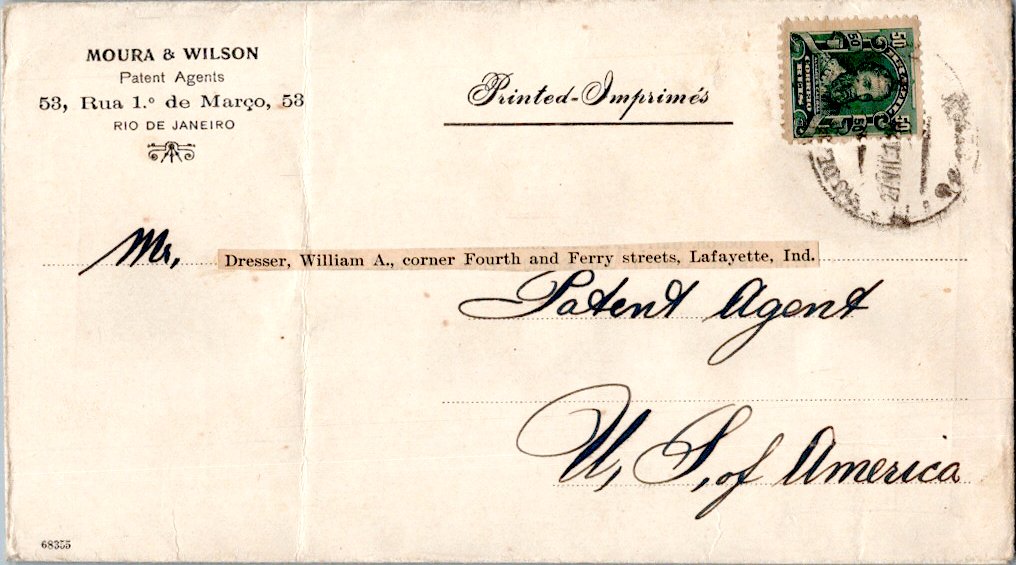 MOURA & WILSON
Patent Agents
53, Rua 1.º de Março, 53
RIO DE JANEIRO
Printed-Imprimés
50 50
CORREIO
REIS
50 50
Mr,
Dresser, William A., corner Fourth and Ferry streets, Lafayette, Ind.
Patent Agent
U, S, of America
68355